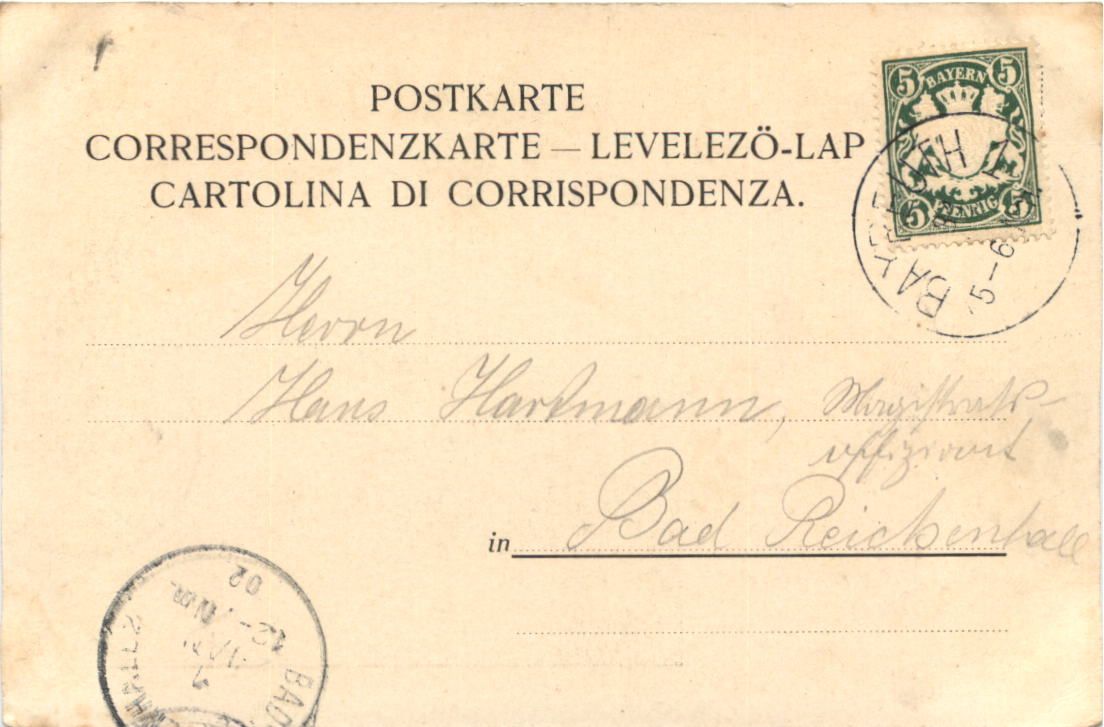 POSTKARTE
CORRESPONDENZKARTE — LEVELEZÖ-LAP
CARTOLINA DI CORRISPONDENZA.
5 BAYERN 5
5 PFENNIG 5
BAYREUTH I
5-6
Herrn
Hans Hartmann, Magistrats-
offiziant
in Bad Reichenhall
BAD
1
JAN.
12-1 Nm.
02